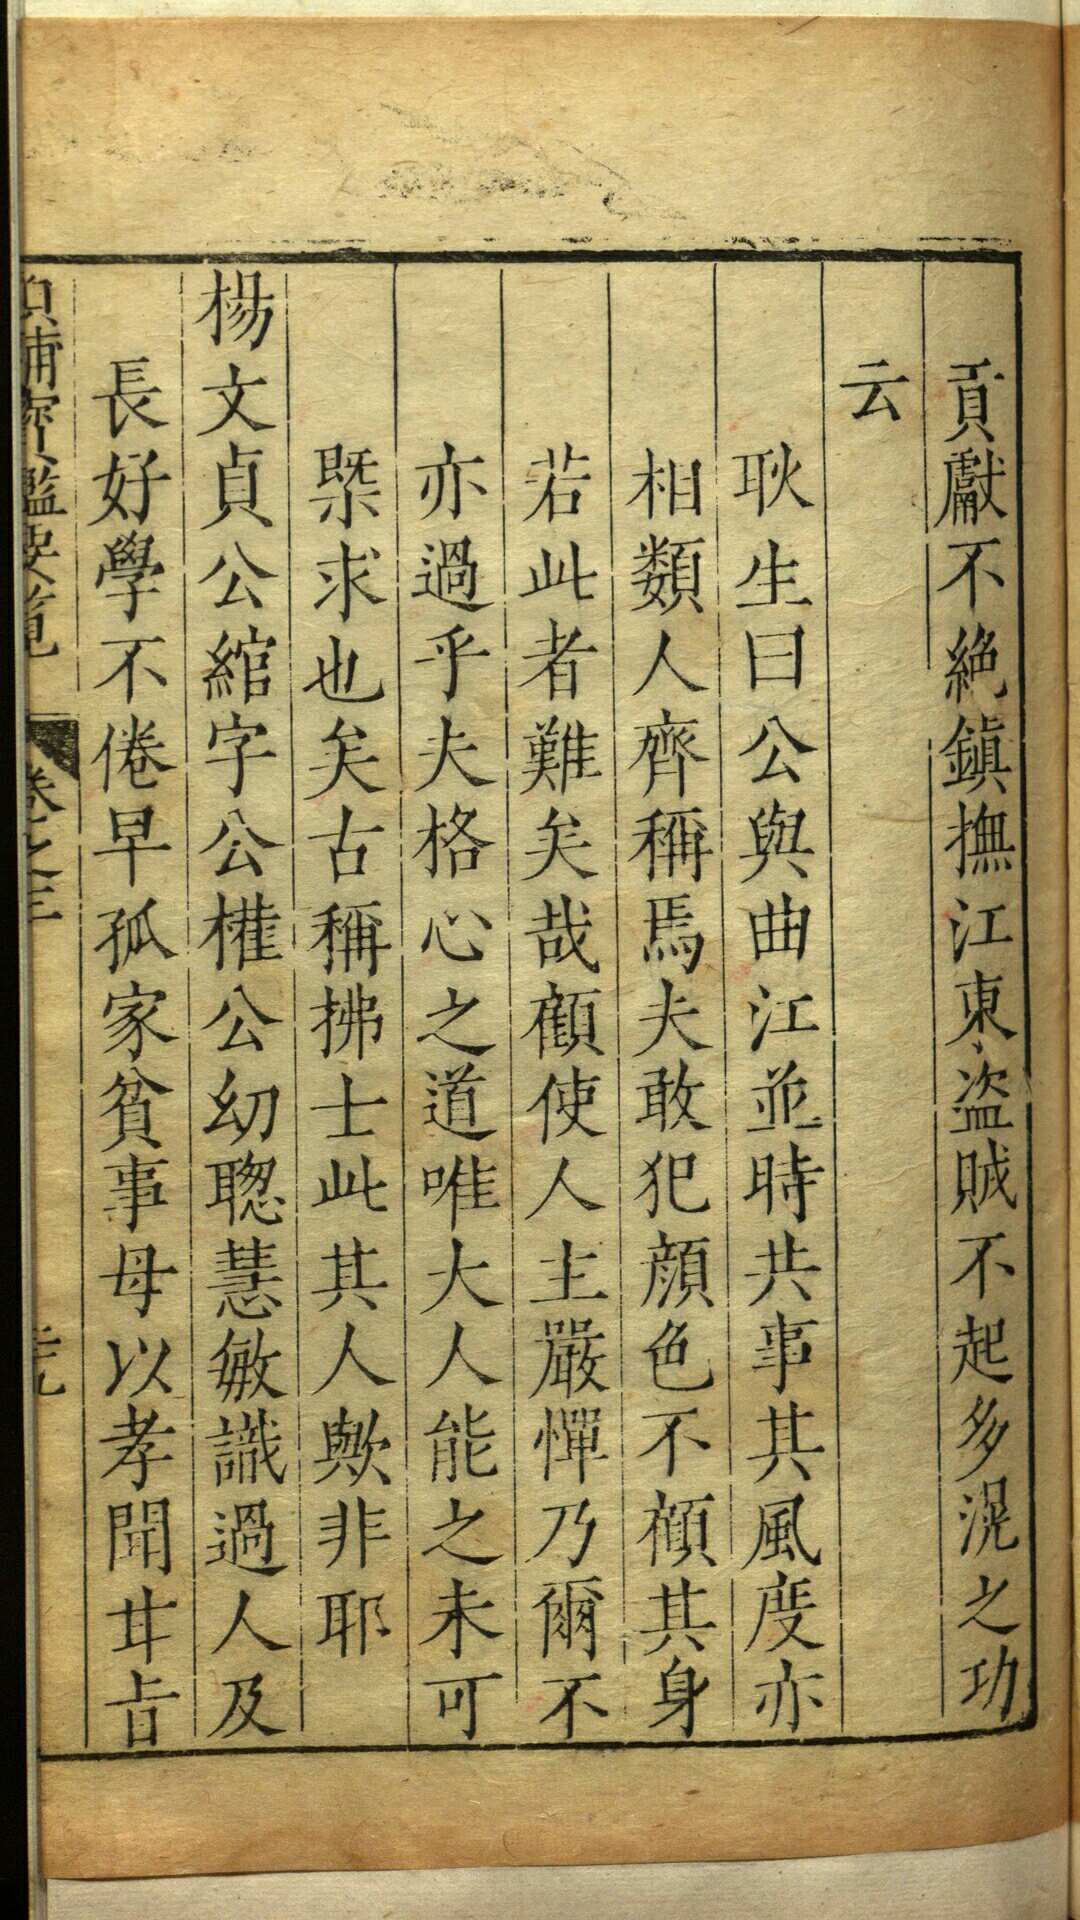 貢獻不絶鎮撫江東盜賊不起多滉之功
云
耿生曰公與曲江並時共事其風度亦
相類人齊稱焉夫敢犯顔色不顧其身
若此者難矣哉顧使人主嚴憚乃爾不
亦過乎夫格心之道唯大人能之未可
槩求也矣古稱拂士此其人歟非耶
楊文貞公綰字公權公幼聰慧敏識過人及
長好學不倦早孤家貧事母以孝聞甘旨
輔寳鑑要覽 卷之三 三十九